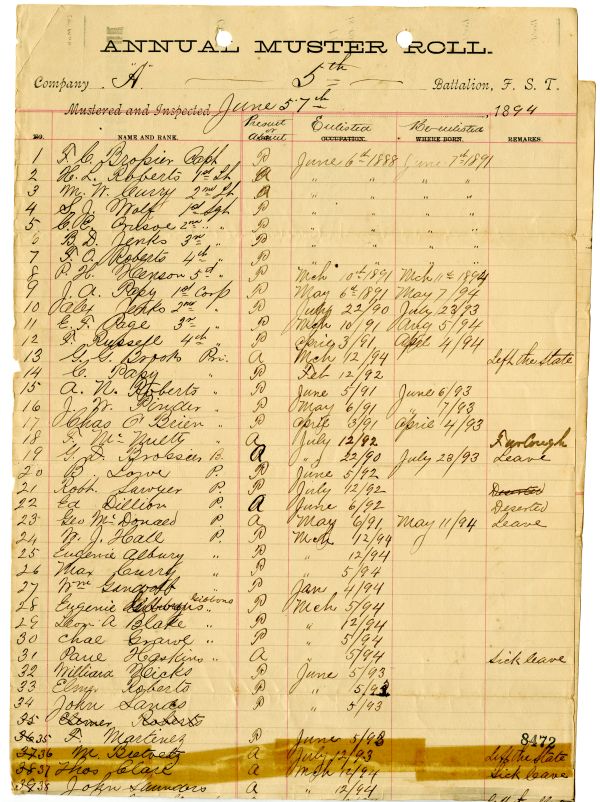 ANNUAL MUSTER ROLL.
Company "A" 5th Battalion, F. S. T.
Mustered and Inspected June 5 7th, 1894
Present or Absent Enlisted Re-enlisted
NO. NAME AND RANK. OCCUPATION. WHERE BORN. REMARKS.
1 F. C. Brossier Capt P June 6th 1888 June 7th 1891
2 H. L. Roberts 1st Lt A " "
3 M. W. Curry 2nd Lt A " "
4 S. J. Wolf 1st Sgt P " "
5 2nd " P " "
6 B. D. Jenks 3rd " P " "
7 F. O. Roberts 4th " P " "
8 P. H. Henson 5th " P Mch 10th 1891 Mch 11th 1894
9 J. A. Papy 1st Corp P May 6th 1891 May 7/94
10 Jenks 2nd " P July 22/90 July 23/93
11 E. F. Page 3rd " P Mch 10/91 Aug 5/94
12 F. Russell 4th " P April 3/91 Apl 4/94
13 G. G. Brooks Pri. A Mch 12/94 Left the State
14 C. Papy " P Feb 12/92
15 A. N. Roberts " P June 5/91 June 6/93
16 J. W. Pinder " P May 6/91 " 7/93
17 Chas O Brien " P April 3/91 April 4/93
18 F. McNuett " A July 12/92 Furlough
19 Geo Brossier P. A " 22/90 July 23/93 Leave
20 B. Lowe P. P June 5/92
21 Robt. Sawyer P. P July 12/92 Deserted
22 Ed Dillion P. A June 6/92 Deserted
23 Geo McDonald P. A May 6/91 May 11/94 Leave
24 W. J. Hall P. P Mch 12/94
25 Eugenie Albury " P " 12/94
26 Max Curry " P " 5/94
27 Wm " P Jan 4/94
28 Eugenie Gibbons " P Mch 5/94
29 Leon A Blake " P " 12/94
30 Chas Crawe " P " 5/94
31 Paul Haskins " A " 5/94 Sick leave
32 Williard Hicks P June 5/93
33 Elmer Roberts P " 5/93
34 John Sands P " 5/93
35 Elomer Roberts
36 35 F. Martinez P June 5/93 8472
37 36 M. A July 12/93 Left the State
38 37 Thos Clark A Mch 12/94 Sick leave
39 38 John Saunders A " 12/94